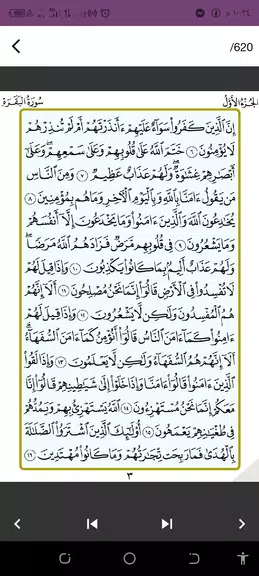 ١٠:٢٤
/620
الجزء الأول
سورة البقرة
إِنَّ الَّذِينَ كَفَرُوا سَوَاءٌ عَلَيْهِمْ ءَأَنذَرْتَهُمْ أَمْ لَمْ تُنذِرْهُمْ
لَا يُؤْمِنُونَ ٦ خَتَمَ اللَّهُ عَلَىٰ قُلُوبِهِمْ وَعَلَىٰ سَمْعِهِمْ وَعَلَىٰ
أَبْصَٰرِهِمْ غِشَٰوَةٌ وَلَهُمْ عَذَابٌ عَظِيمٌ ٧ وَمِنَ النَّاسِ
مَن يَقُولُ ءَامَنَّا بِاللَّهِ وَبِالْيَوْمِ الْءَاخِرِ وَمَا هُم بِمُؤْمِنِينَ ٨
يُخَٰدِعُونَ اللَّهَ وَالَّذِينَ ءَامَنُوا وَمَا يَخْدَعُونَ إِلَّا أَنفُسَهُمْ
وَمَا يَشْعُرُونَ ٩ فِي قُلُوبِهِم مَّرَضٌ فَزَادَهُمُ اللَّهُ مَرَضًا
وَلَهُمْ عَذَابٌ أَلِيمٌ بِمَا كَانُوا يَكْذِبُونَ ١٠ وَإِذَا قِيلَ لَهُمْ
لَا تُفْسِدُوا فِي الْأَرْضِ قَالُوا إِنَّمَا نَحْنُ مُصْلِحُونَ ١١ أَلَا إِنَّهُمْ
هُمُ الْمُفْسِدُونَ وَلَٰكِن لَّا يَشْعُرُونَ ١٢ وَإِذَا قِيلَ لَهُمْ
ءَامِنُوا كَمَا ءَامَنَ النَّاسُ قَالُوا أَنُؤْمِنُ كَمَا ءَامَنَ السُّفَهَاءُ
أَلَا إِنَّهُمْ هُمُ السُّفَهَاءُ وَلَٰكِن لَّا يَعْلَمُونَ ١٣ وَإِذَا لَقُوا
الَّذِينَ ءَامَنُوا قَالُوا ءَامَنَّا وَإِذَا خَلَوْا إِلَىٰ شَيَٰطِينِهِمْ قَالُوا إِنَّا
مَعَكُمْ إِنَّمَا نَحْنُ مُسْتَهْزِءُونَ ١٤ اللَّهُ يَسْتَهْزِئُ بِهِمْ وَيَمُدُّهُمْ
فِي طُغْيَٰنِهِمْ يَعْمَهُونَ ١٥ أُولَٰئِكَ الَّذِينَ اشْتَرَوُا الضَّلَٰلَةَ
بِالْهُدَىٰ فَمَا رَبِحَت تِّجَٰرَتُهُمْ وَمَا كَانُوا مُهْتَدِينَ ١٦
٣